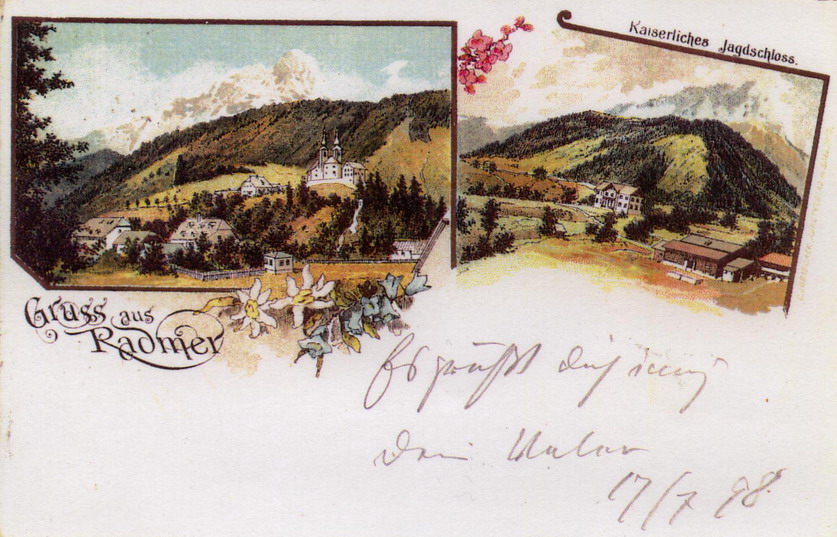 Kaiserliches Jagdschloss.
Gruss aus
Radmer
Es grüßt dich innig
Dein Vater
17/7 98.